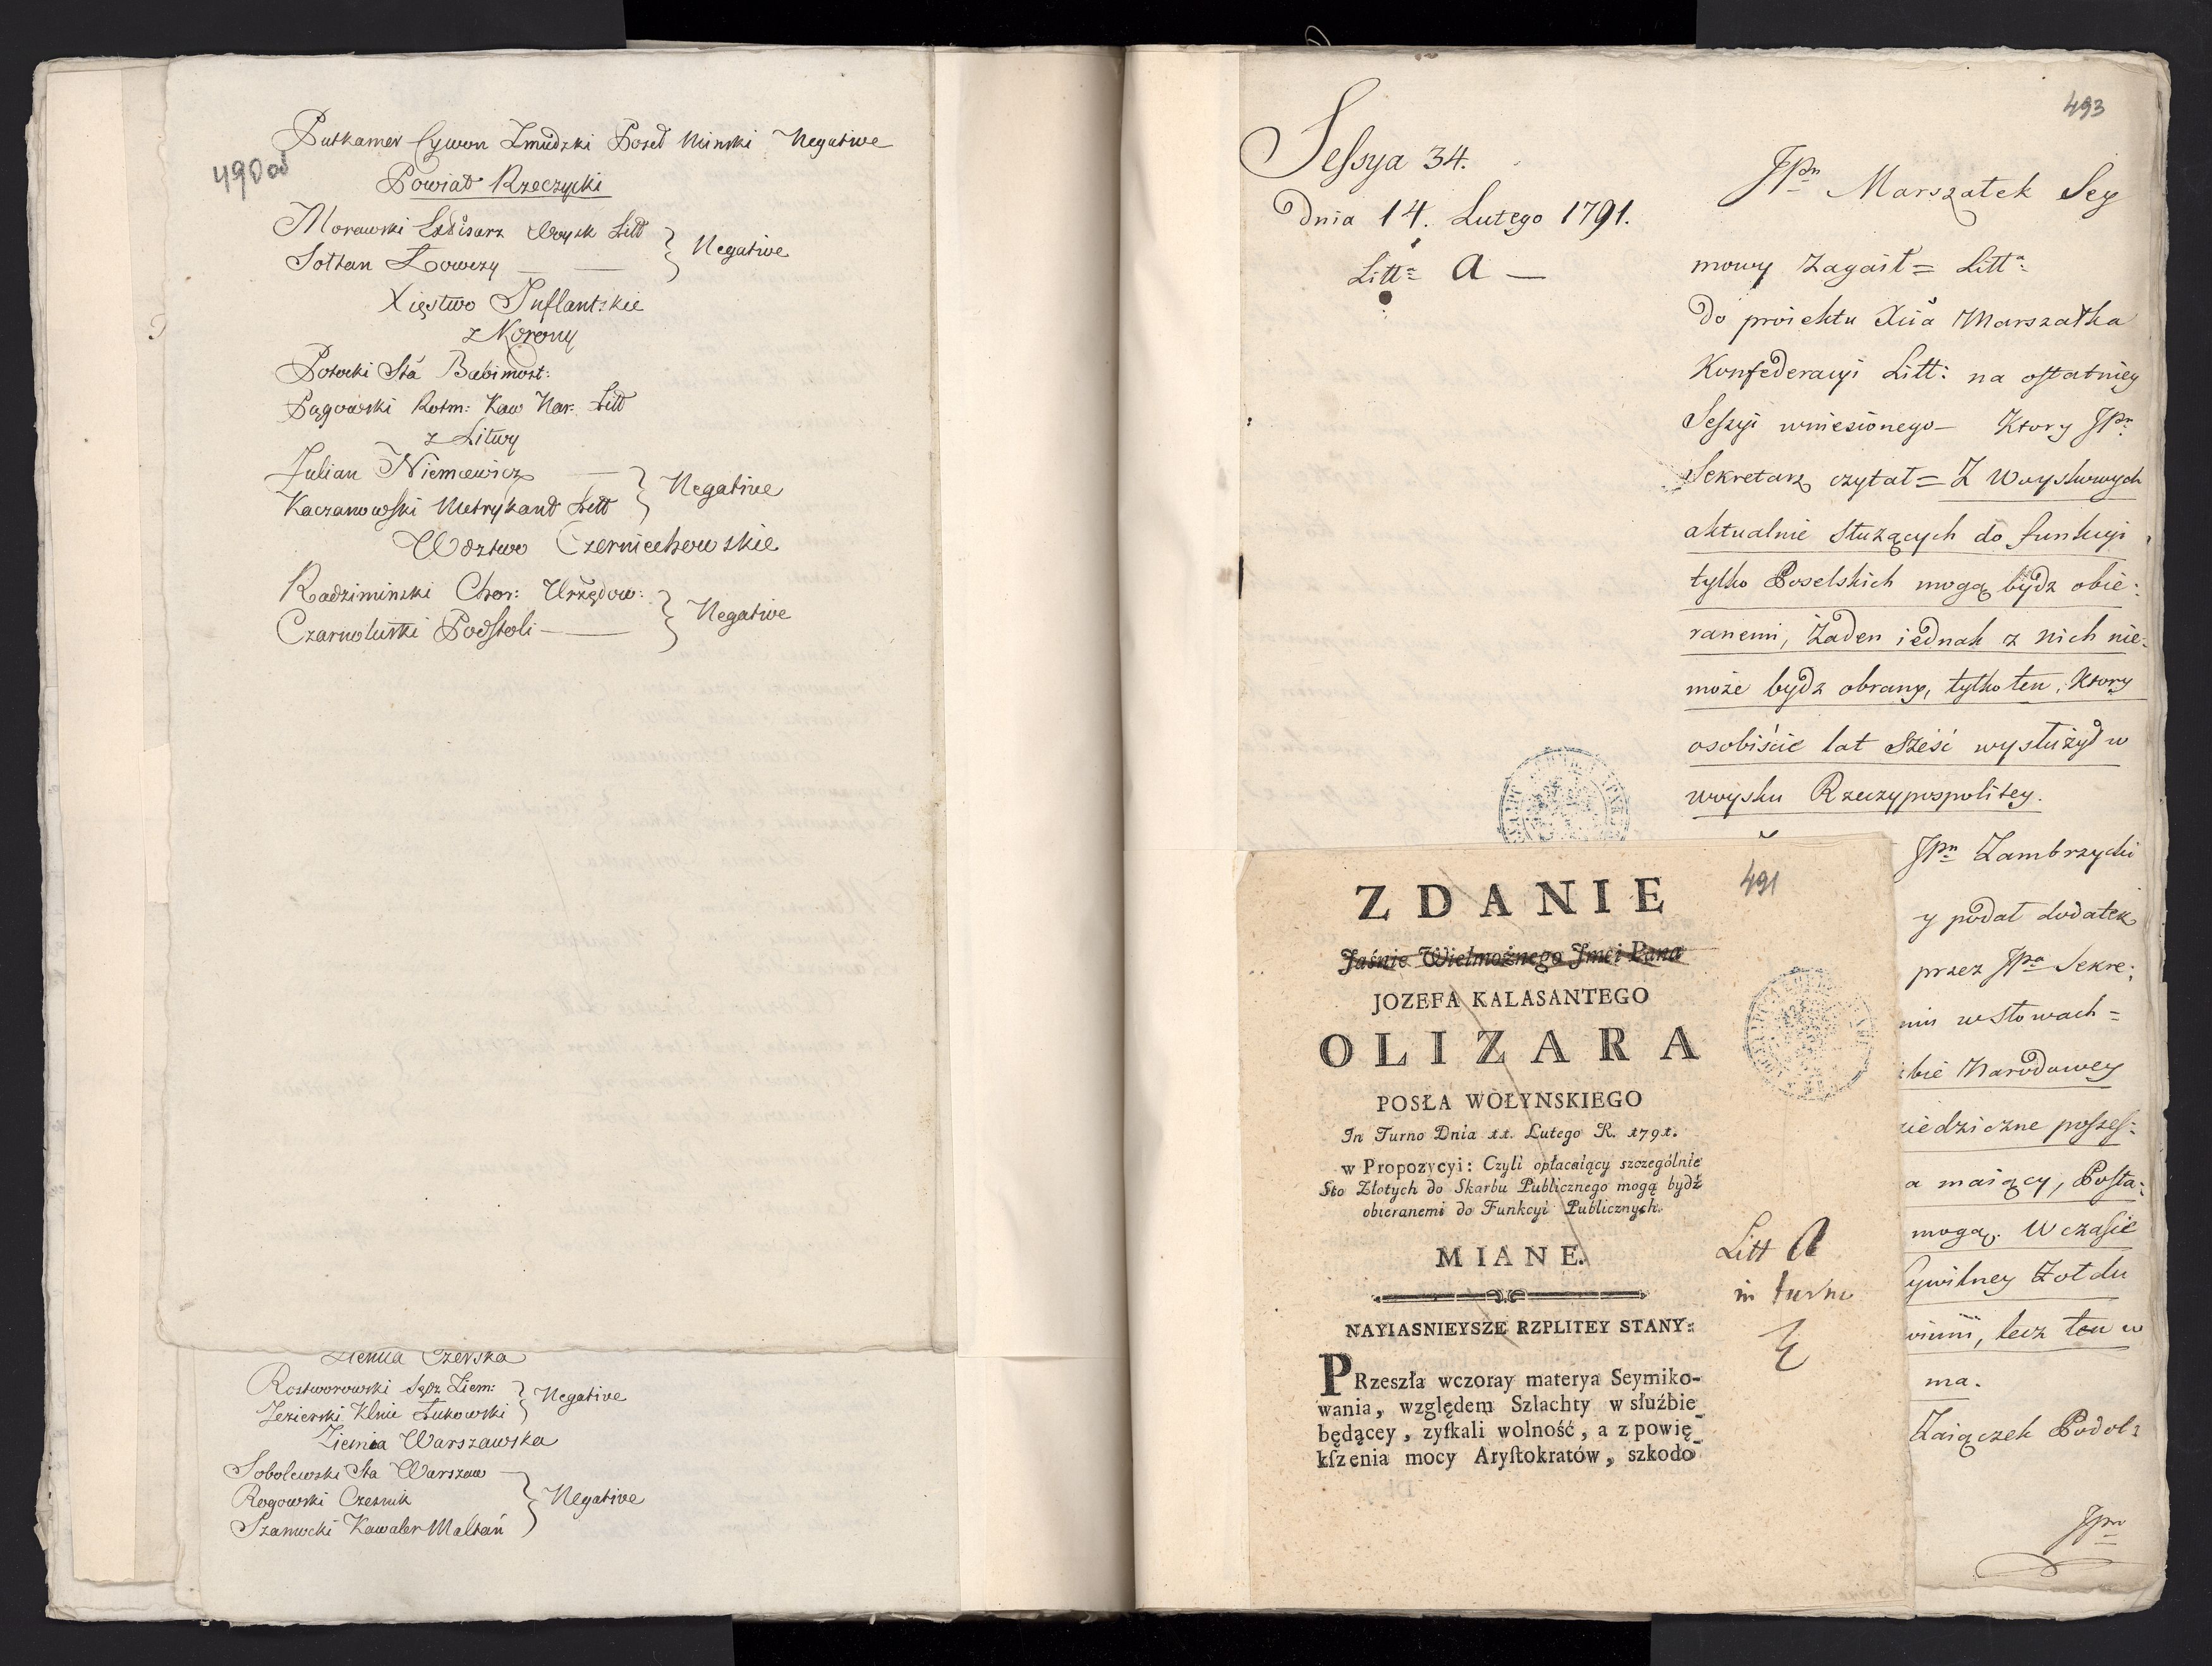 Putkamer Cywon Zmudzki Poseł Minski Negative
490 od
Powiat Rzeczycki
Morawski Pisarz Woysk Litt
Sołtan Łowczy — —
} Negative
Xięstwo Inflantskie
z Korony
Potocki Sta Babimost:
Pągowski Rotm: Kaw Nar: Litt
z Litwy
Julian Niemcewicz —
Kaczanowski Metrykant Litt
} Negative
Wdztwo Czerniechowskie
Radziminski Chor: Urzędow:
Czarnolutski Podstoli —
} Negative
Ziemia Czerska
Rostworowski Sędz Ziem:
Jezierski Klnic Łukowski
} Negative
Ziemia Warszawska
Sobolewski Sta Warszaw —
Rogowski Czesnik
Szamocki Kawaler Maltań
} Negative
493
Seſsya 34.
Dnia 14. Lutego 1791.
Litt: A —
JPn Marszałek Sey
mowy Zagaił = Litt:
do proiektu Xcia Marszałka
Konfederacyi Litt: na oſtatniey
Seſsyi wniesionego — Ktory JPn
Sekretarz czytał = Z Woyskowych
aktualnie służących do funkcyi
tylko Poselskich mogą bydz obie:
ranemi, Żaden iednak z nich nie:
może bydz obrany, tylko ten, Ktory
osobiście lat Sześć wysłużył w
woysku Rzeczypospolitey.
JPn Zambrzycki
y podał dodatek
przez JPa Sekre:
w Słowach =
bie Narodowey
iedziczne poſseſ:
a maiący, Poſła:
mogą. W czaſie
Cywilney Żołdu
winni, lecz ten w
ma.
Zaiączek Podol:
JPn
491
ZDANIE
Jaśnie Wielmożnego Jmci Pana
JOZEFA KALASANTEGO
OLIZARA
POSŁA WOŁYNSKIEGO
In Turno Dnia 11. Lutego R. 1791.
w Propozycyi: Czyli opłacaiący szczególnie
Sto Złotych do Skarbu Publicznego mogą bydź
obieranemi do Funkcyi Publicznych.
MIANE.
Litt A
in turno
NAYIASNIEYSZE RZPLITEY STANY:
PRzeszła wczoray materya Seymiko-
wania, względem Szlachty w służbie
będącey, zyſkali wolność, a z powię-
kſzenia mocy Aryſtokratów, szkodo-